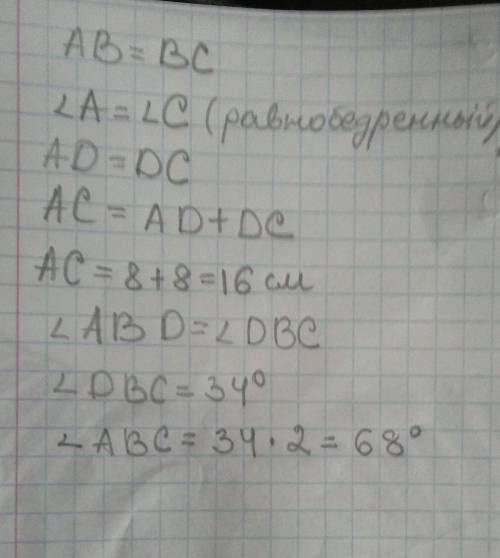 AB = BC
∠A = ∠C (равнобедренный)
AD = DC
AC = AD + DC
AC = 8 + 8 = 16 см
∠ABD = ∠DBC
∠DBC = 34°
∠ABC = 34 · 2 = 68°